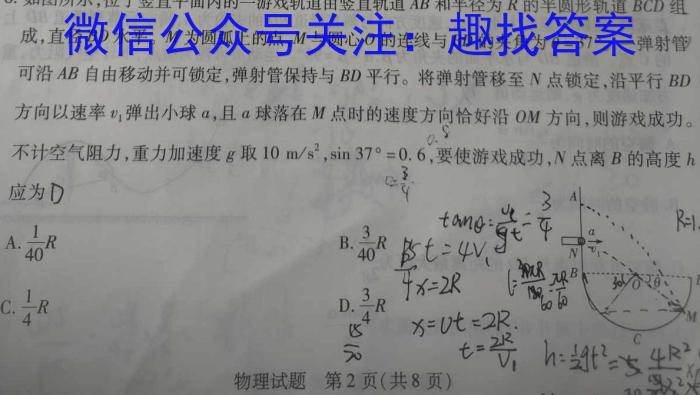 如图所示,位于竖直平面内的一游戏轨道由竖直轨道 AB 和半径为 R 的半圆形轨道 BCD 组
微信公众号关注：趣找答案
成,直径BD水平,M为圆弧上的点,M与圆心O的连线与 弹射管
可沿 AB 自由移动并可锁定,弹射管保持与 BD 平行。将弹射管移至 N 点锁定,沿平行 BD
方向以速率 v₁弹出小球 a,且 a 球落在 M 点时的速度方向恰好沿 OM 方向,则游戏成功。
不计空气阻力,重力加速度 g 取 10 m/s²,sin 37°=0.6,要使游戏成功,N 点离 B 的高度 h
应为 D
A. 1/40 R
B. 3/40 R
C. 1/4 R
D. 3/4 R
0.8
3/4
tanθ= =3/4
t=4V₁
x=2R
x=vt=2R.
t=2R/V₁
h=½gt²=5 4R²
R=1
A
a
v₁
N
B
O
M
C
15/20
物理试题 第 2 页(共 8 页)